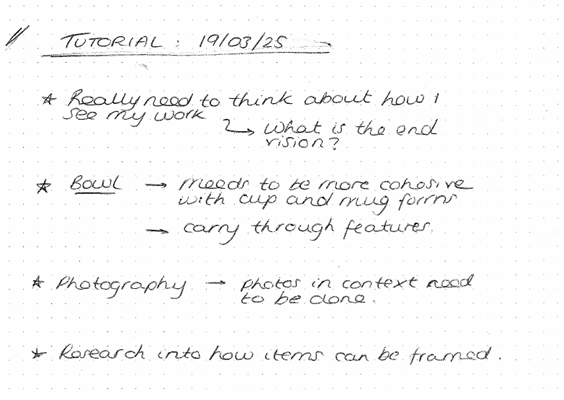 TUTORIAL : 19/03/25
* Really need to think about how I
see my work
↳ What is the end
vision?
* BOWL → needs to be more cohosive
with cup and mug forms
→ carry through features.
* Photography → photos in context need
to be done.
* Research into how items can be framed.